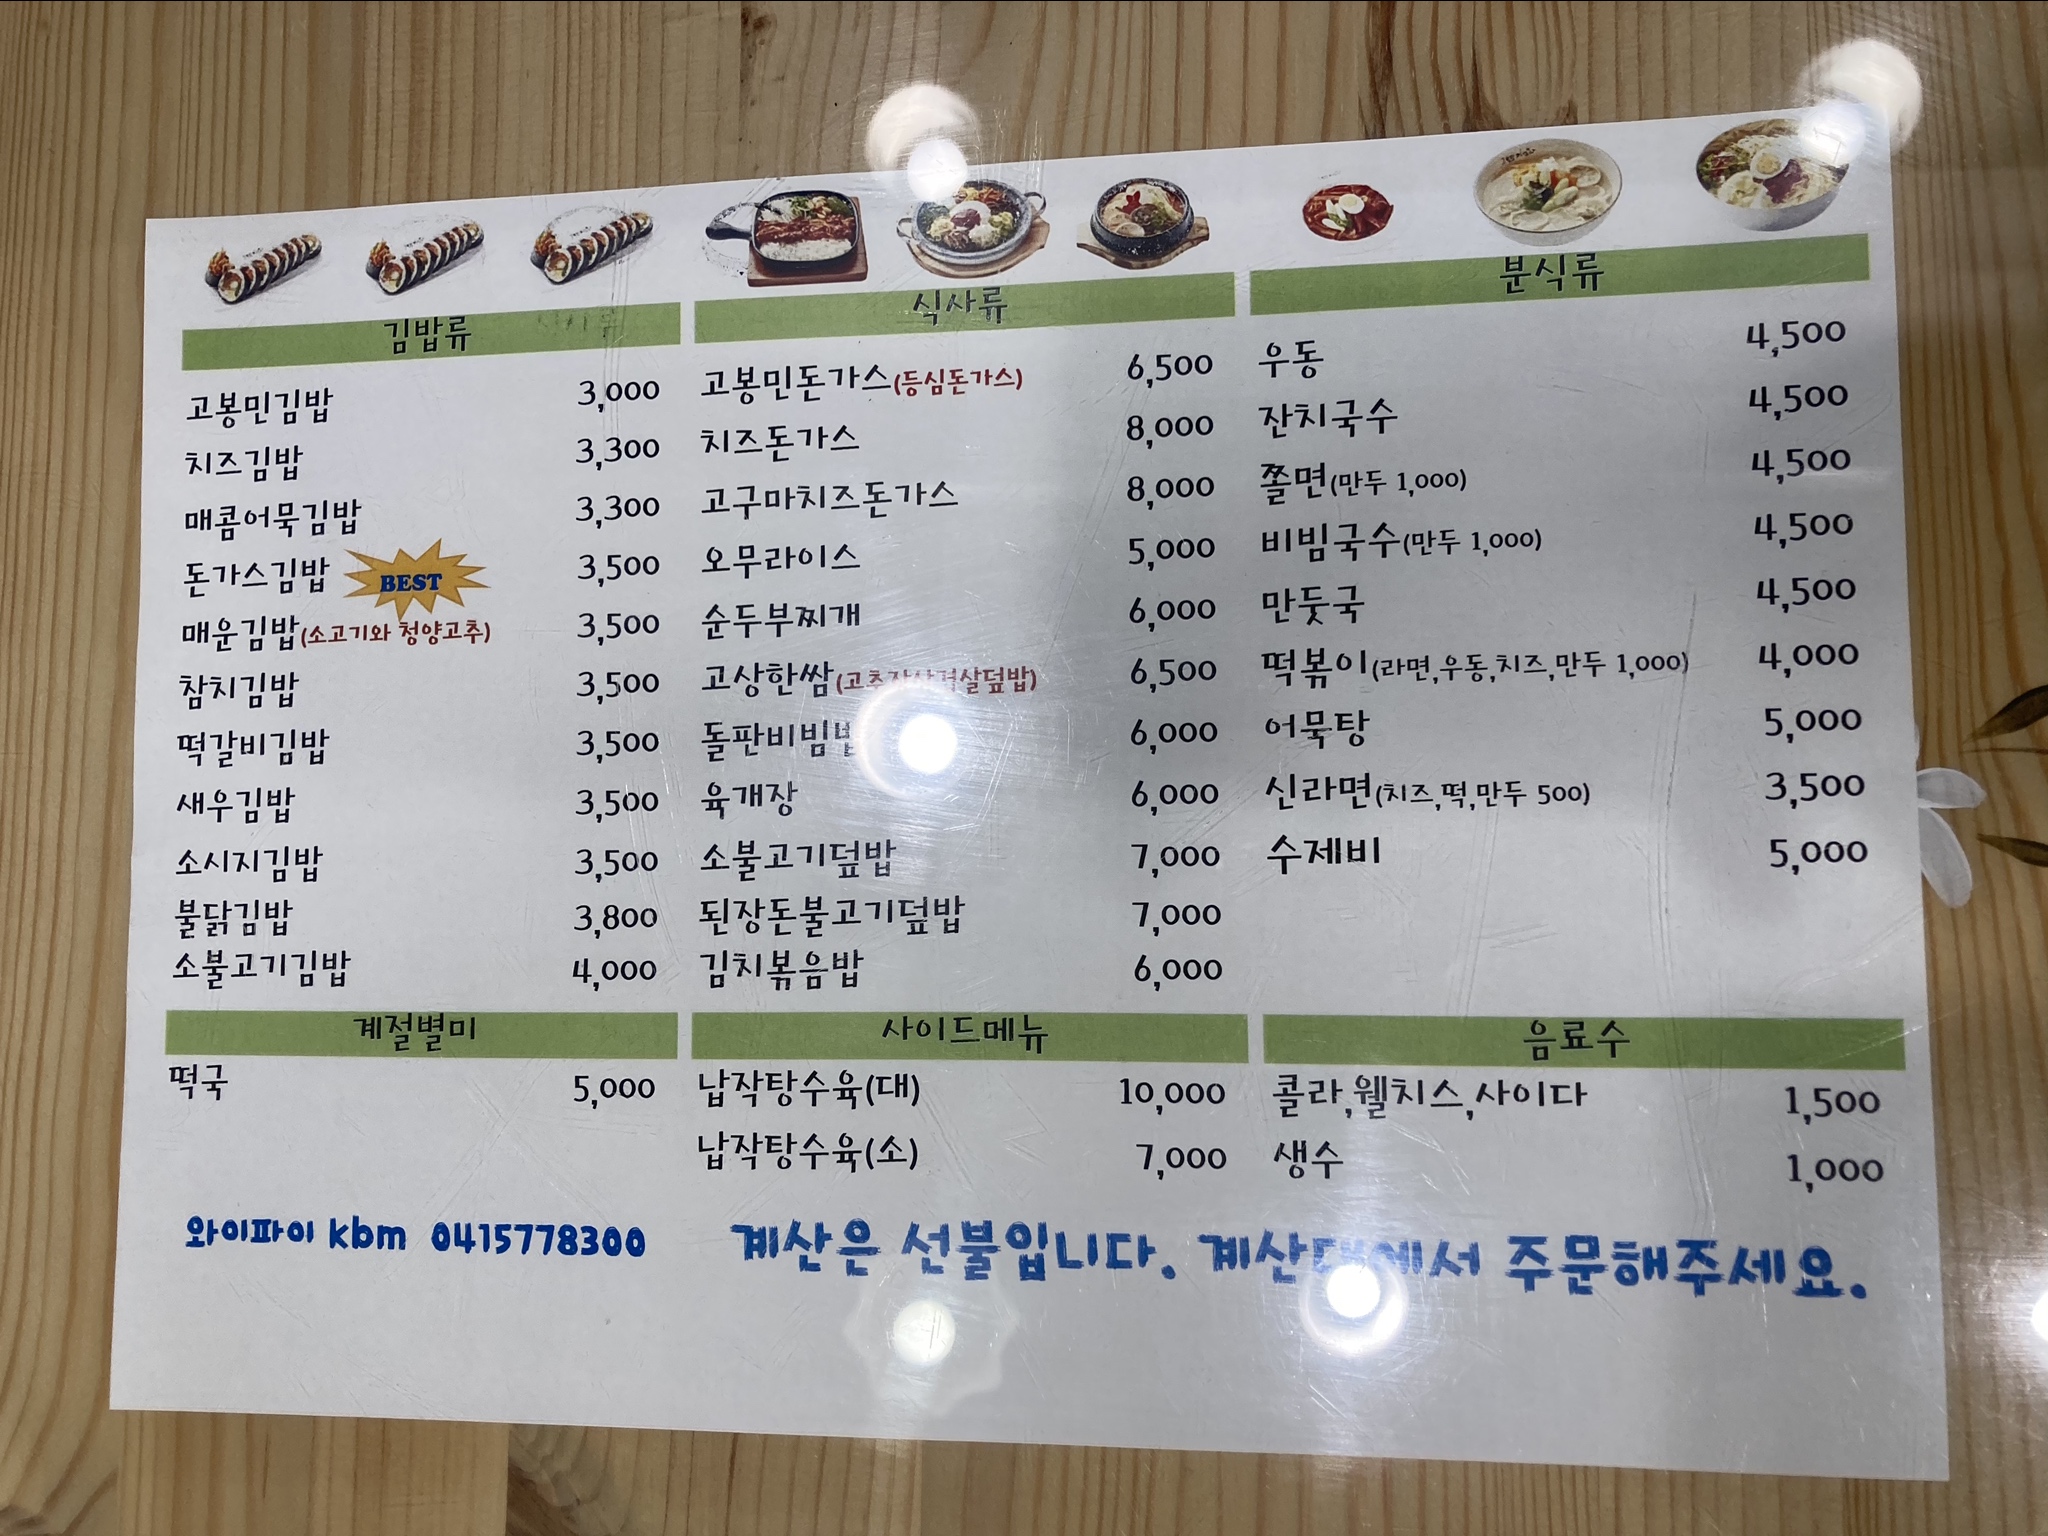 김밥류
고봉민김밥 3,000
치즈김밥 3,300
매콤어묵김밥 3,300
돈가스김밥 BEST 3,500
매운김밥(소고기와 청양고추) 3,500
참치김밥 3,500
떡갈비김밥 3,500
새우김밥 3,500
소시지김밥 3,500
불닭김밥 3,800
소불고기김밥 4,000
식사류
고봉민돈가스(등심돈가스) 6,500
치즈돈가스 8,000
고구마치즈돈가스 8,000
오무라이스 5,000
순두부찌개 6,000
고상한쌈 6,500
돌판비빔밥 6,000
육개장 6,000
소불고기덮밥 7,000
된장돈불고기덮밥 7,000
김치볶음밥 6,000
분식류
우동 4,500
잔치국수 4,500
쫄면(만두 1,000) 4,500
비빔국수(만두 1,000) 4,500
만둣국 4,500
떡볶이(라면,우동,치즈,만두 1,000) 4,000
어묵탕 5,000
신라면(치즈,떡,만두 500) 3,500
수제비 5,000
계절별미
떡국 5,000
사이드메뉴
납작탕수육(대) 10,000
납작탕수육(소) 7,000
음료수
콜라,웰치스,사이다 1,500
생수 1,000
와이파이 kbm 0415778300
계산은 선불입니다. 계산대에서 주문해주세요.